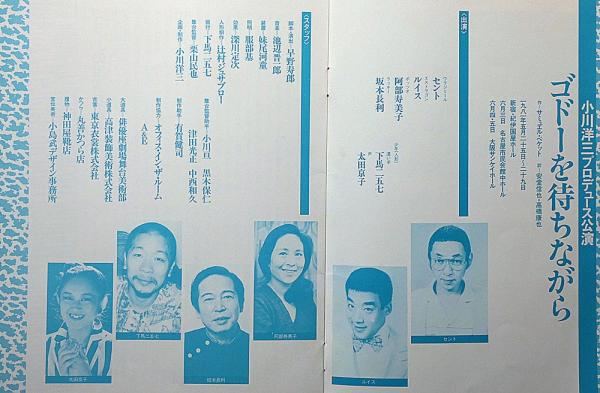 小川洋三プロデュース公演
ゴドーを待ちながら
作・サミュエル・ベケット 訳・安堂信也・高橋康也
一九八一年五月二十五日～二十九日
新宿・紀伊國屋ホール
六月三日 名古屋市民会館中ホール
六月四・五日 大阪サンケイホール
〈出演〉
ウラジミール
セント
エストラゴン
ルイス
ポッツォ
阿部寿美子
ラッキー
坂本長利
少年(人形)
遣い手
下馬二五七
声
太田京子
〈スタッフ〉
脚本・演出 早野寿郎
音楽 池辺晋一郎
装置 妹尾河童
照明 服部基
効果 深川定次
人形制作 辻村ジュサブロー
振付 下馬二五七
舞台監督 栗山民也
企画・制作 小川洋三
舞台監督助手 小川亘 黒木保仁
津田光正 中西和久
制作助手 有賀健司
制作協力 オフィス・イン・ザ・ルーム
A&E
大道具 俳優座劇場舞台美術部
小道具 高津装飾美術株式会社
衣裳 東京衣裳株式会社
かつら 丸善かつら店
履物 神田屋靴店
宣伝美術 小島武デザイン事務所
セント
ルイス
阿部寿美子
坂本長利
下馬二五七
太田京子